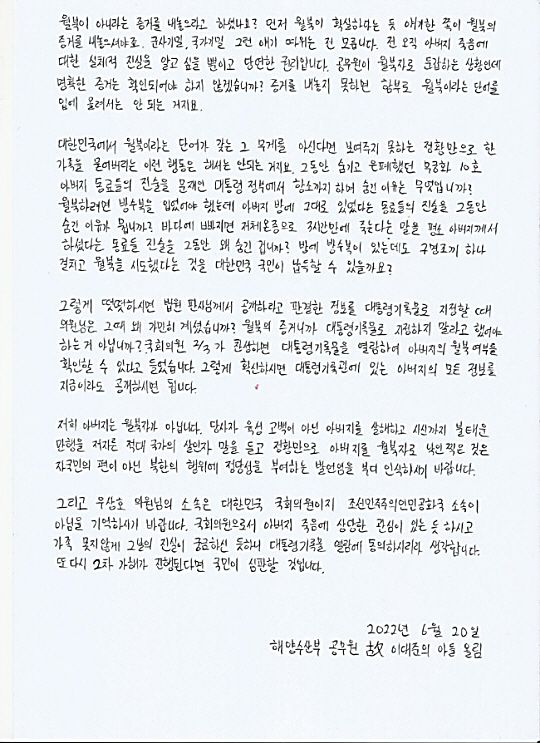 월북이 아니라는 증거를 내놓으라고 하셨나요? 먼저 월북이 확실하다는 듯 얘기한 쪽이 월북의
증거를 내놓으셔야죠. 군사기밀, 국가기밀 그런 얘기 따위는 전 모릅니다. 전 오직 아버지 죽음에
대한 실체적 진실을 알고 싶을 뿐이고 당연한 권리입니다. 공무원이 월북자로 둔갑하는 상황인데
명확한 증거는 확인되어야 하지 않겠습니까? 증거를 내놓지 못하면 함부로 월북이라는 단어를
입에 올려서는 안 되는 거지요.
대한민국에서 월북이라는 단어가 갖는 그 무게를 아신다면 보여주지 못하는 정황만으로 한
가족을 묻어버리는 이런 행동은 해서는 안되는 거지요. 그동안 숨기고 은폐했던 무궁화 10호
아버지 동료들의 진술을 문재인 대통령 정부에서 항소까지 하며 숨긴 이유는 무엇입니까?
월북하려면 방수복을 입었어야 했는데 아버지 방에 그대로 있었다는 동료들의 진술을 그동안
숨긴 이유가 뭡니까? 바다에 빠지면 저체온증으로 3시간만에 죽는다는 말을 평소 아버지께서
하셨다는 동료들 진술을 그동안 왜 숨긴 겁니까? 방에 방수복이 있는데도 구명조끼 하나
걸치고 월북을 시도했다는 것을 대한민국 국민이 납득할 수 있을까요?
그렇게 떳떳하시면 법원 판사님께서 공개하라고 판결한 정보를 대통령기록물로 지정할 때
의원님은 그때 왜 가만히 계셨습니까? 월북의 증거니까 대통령기록물로 지정하지 말라고 했어야
하는 거 아닙니까? 국회의원 2/3가 찬성하면 대통령기록물을 열람하여 아버지의 월북여부를
확인할 수 있다고 들었습니다. 그렇게 확신하시면 대통령기록관에 있는 아버지의 모든 정보를
지금이라도 공개하시면 됩니다.
저희 아버지는 월북자가 아닙니다. 당사자 육성 고백이 아닌 아버지를 살해하고 시신까지 불태운
만행을 저지른 적대 국가의 살인자 말을 듣고 정황만으로 아버지를 월북자로 낙인 찍은 것은
자국민의 편이 아닌 북한의 행위에 정당성을 부여하는 발언임을 부디 인식하시기 바랍니다.
그리고 우상호 의원님의 소속은 대한민국 국회의원이지 조선민주주의인민공화국 소속이
아님을 기억하시기 바랍니다. 국회의원으로서 아버지 죽음에 상당한 관심이 있는 듯 하시고
가족 못지않게 그날의 진실이 궁금하신 듯하니 대통령기록물 열람에 동의하시리라 생각합니다.
또 다시 2차 가해가 진행된다면 국민이 심판할 것입니다.
2022년 6월 20일
해양수산부 공무원 故 이대준의 아들 올림